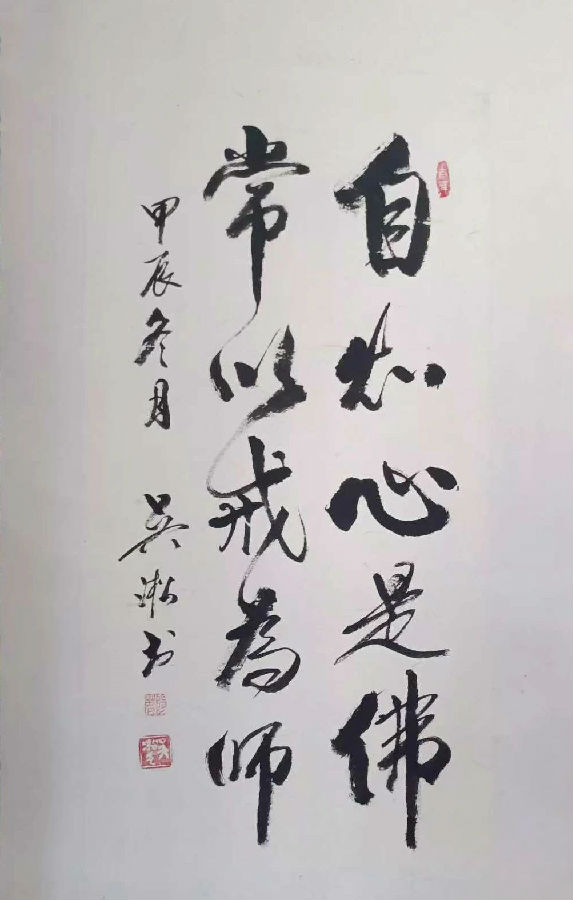 自知心是佛
常以戒為师
甲辰冬月 吴淞书